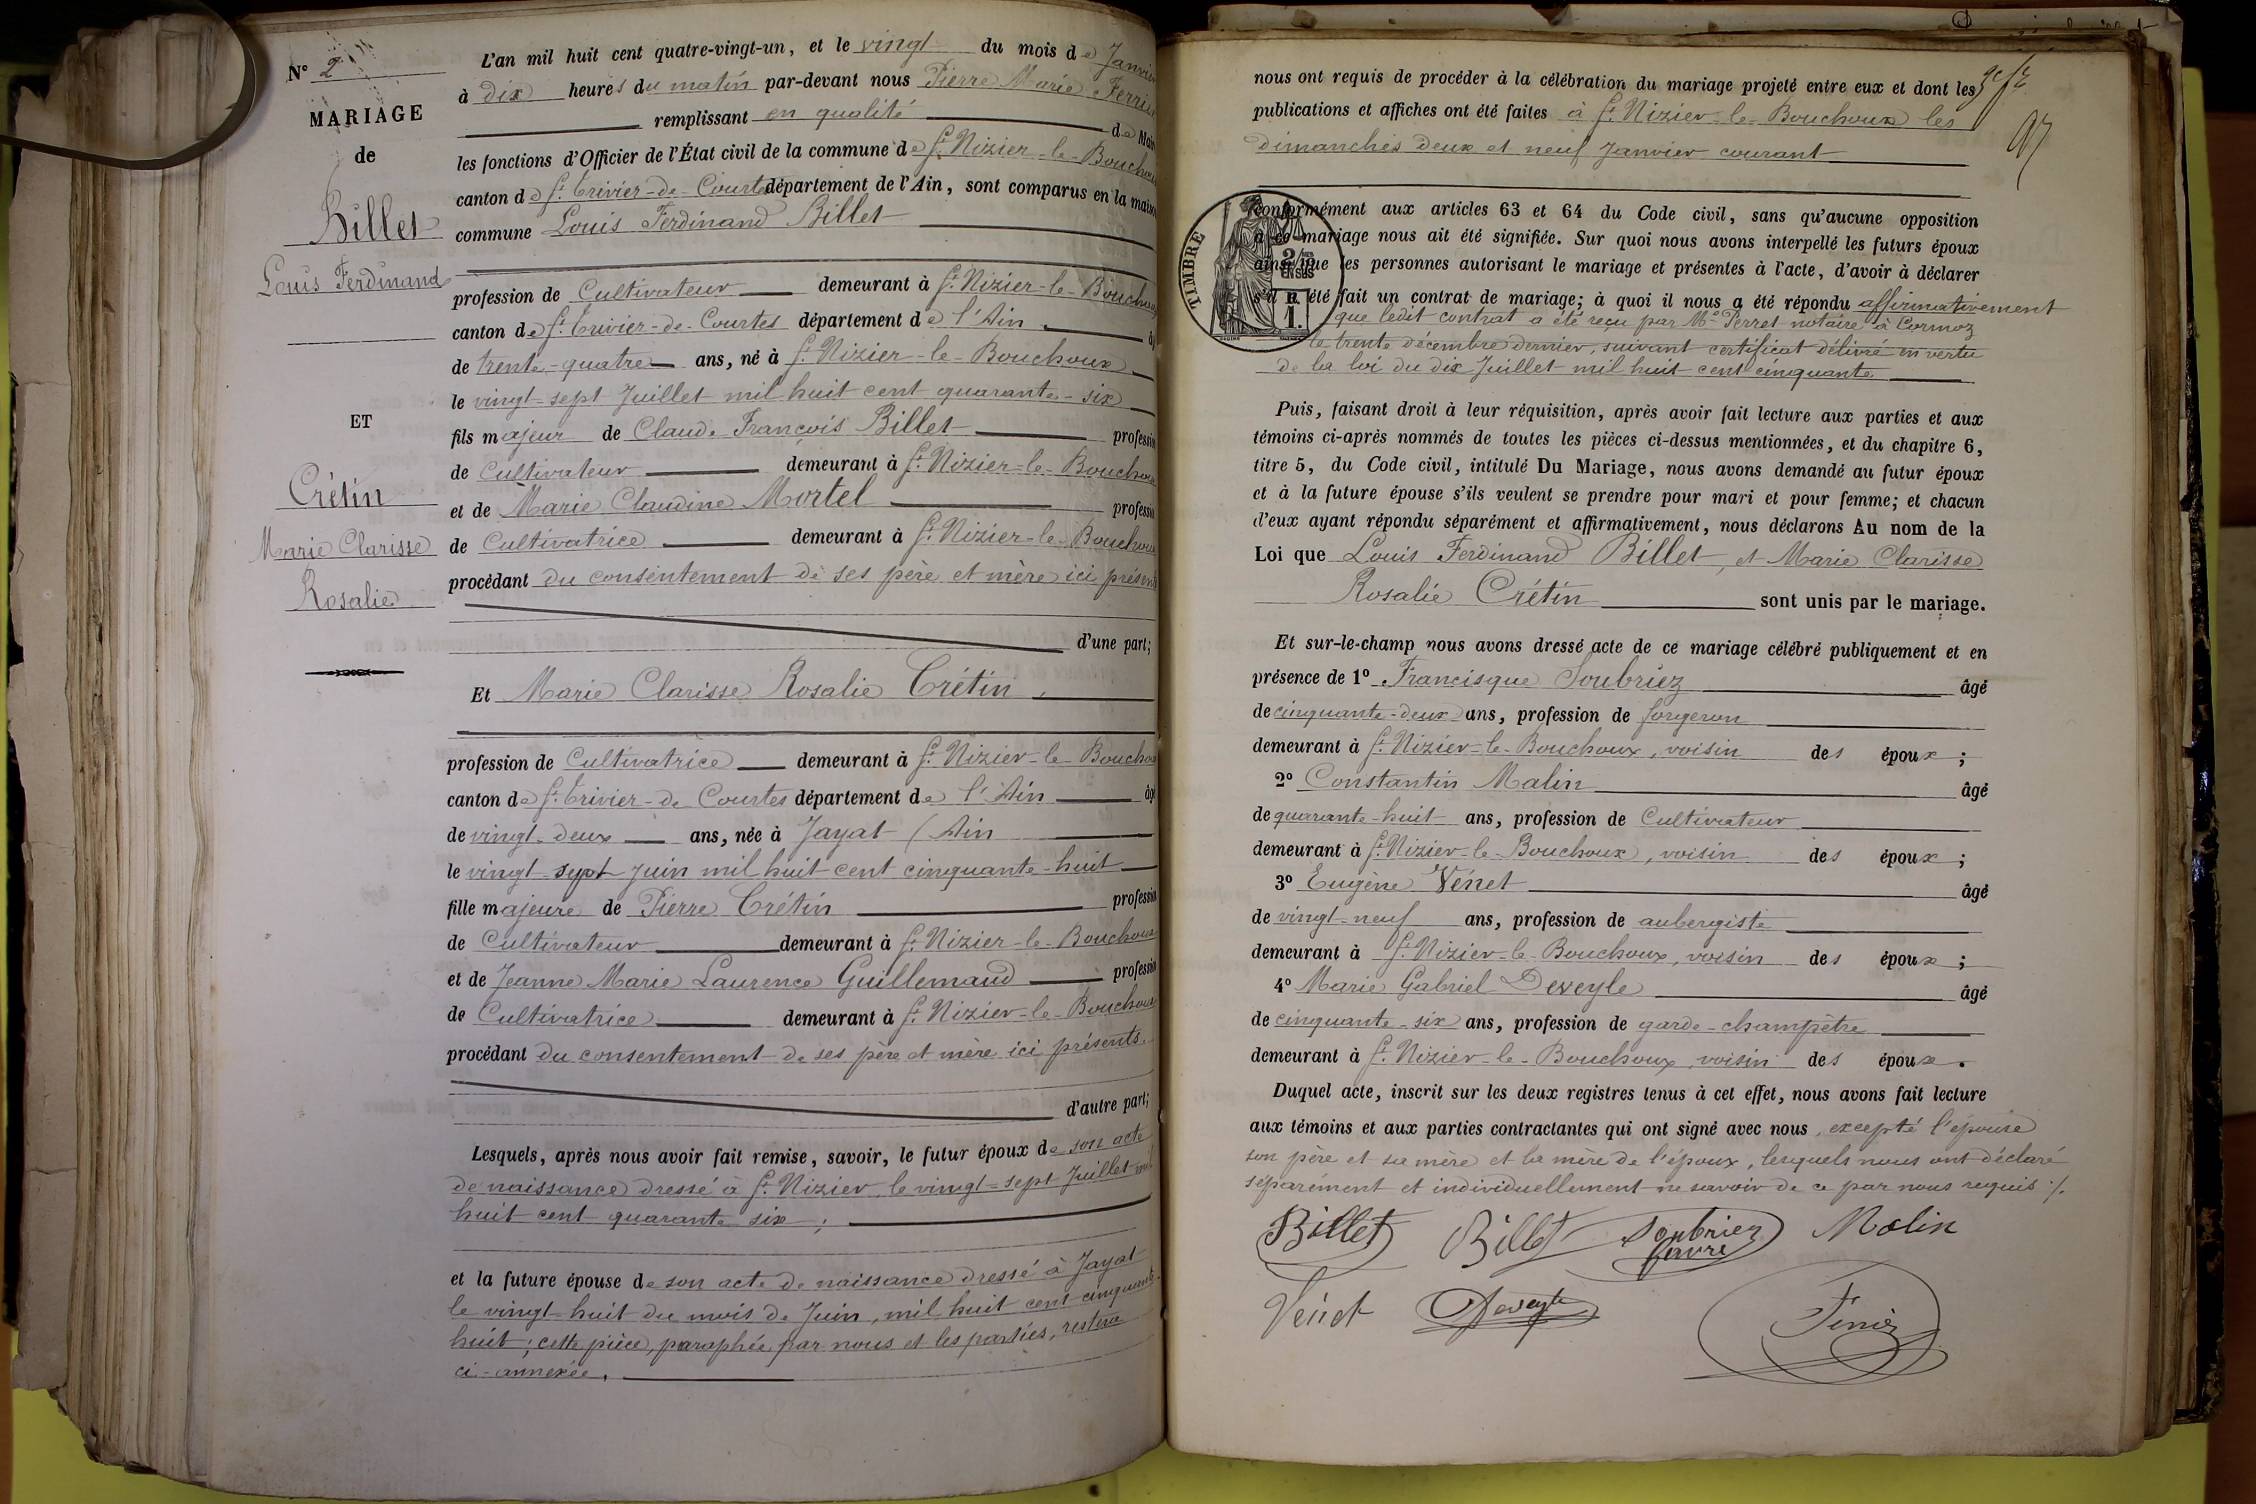 N° 2
MARIAGE
de
Billet
Louis Ferdinand
ET
Crétin
Marie Clarisse
Rosalie
L'an mil huit cent quatre-vingt-un, et le vingt du mois de Janvier
à dix heures du matin par-devant nous Pierre Marie
remplissant en qualité de
les fonctions d'Officier de l'État civil de la commune de St. Nizier-le-Bouchoux
canton de St. Trivier-de-Courtes département de l'Ain, sont comparus en la maison
commune Louis Ferdinand Billet
profession de Cultivateur demeurant à St. Nizier-le-Bouchoux
canton de St. Trivier-de-Courtes département de l'Ain
de trente-quatre ans, né à St. Nizier-le-Bouchoux
le vingt-sept Juillet mil huit cent quarante-six
fils majeur de Claude François Billet profession
de Cultivateur demeurant à St. Nizier-le-Bouchoux
et de Marie Claudine Mortel profession
de Cultivatrice demeurant à St. Nizier-le-Bouchoux
procédant du consentement de ses père et mère ici présents
d'une part;
Et Marie Clarisse Rosalie Crétin,
profession de Cultivatrice demeurant à St. Nizier-le-Bouchoux
canton de St. Trivier-de-Courtes département de l'Ain âgé
de vingt-deux ans, née à Jayat (Ain
le vingt-sept Juin mil huit cent cinquante-huit
fille majeure de Pierre Crétin profession
de Cultivateur demeurant à St. Nizier-le-Bouchoux
et de Jeanne Marie Laurence Guillemaud profession
de Cultivatrice demeurant à St. Nizier-le-Bouchoux
procédant du consentement de ses père et mère ici présents.
d'autre part;
Lesquels, après nous avoir fait remise, savoir, le futur époux de son acte
de naissance dressé à St. Nizier, le vingt-sept Juillet mil
huit cent quarante six;
et la future épouse de son acte de naissance dressé à Jayat
le vingt-huit du mois de Juin, mil huit cent cinquante-
huit; cette pièce, paraphée par nous et les parties, restera
ci-annexée.
nous ont requis de procéder à la célébration du mariage projeté entre eux et dont les
publications et affiches ont été faites à St. Nizier-le-Bouchoux les
dimanches deux et neuf Janvier courant
TIMBRE
conformément aux articles 63 et 64 du Code civil, sans qu'aucune opposition
à ce mariage nous ait été signifiée. Sur quoi nous avons interpellé les futurs époux
ainsi que les personnes autorisant le mariage et présentes à l'acte, d'avoir à déclarer
s'il a été fait un contrat de mariage; à quoi il nous a été répondu affirmativement
que ledit contrat a été reçu par Me. Perret notaire à Cormoz
le trente décembre dernier, suivant certificat délivré en vertu
de la loi du dix Juillet mil huit cent cinquante
Puis, faisant droit à leur réquisition, après avoir fait lecture aux parties et aux
témoins ci-après nommés de toutes les pièces ci-dessus mentionnées, et du chapitre 6,
titre 5, du Code civil, intitulé Du Mariage, nous avons demandé au futur époux
et à la future épouse s'ils veulent se prendre pour mari et pour femme; et chacun
d'eux ayant répondu séparément et affirmativement, nous déclarons Au nom de la
Loi que Louis Ferdinand Billet, et Marie Clarisse
Rosalie Crétin sont unis par le mariage.
Et sur-le-champ nous avons dressé acte de ce mariage célébré publiquement et en
présence de 1° Francisque Soubriez âgé
de cinquante-deux ans, profession de forgeron
demeurant à St. Nizier-le-Bouchoux, voisin des époux;
2° Constantin Malin âgé
de quarante-huit ans, profession de Cultivateur
demeurant à St. Nizier-le-Bouchoux, voisin des époux;
3° Eugène Vénet âgé
de vingt-neuf ans, profession de aubergiste
demeurant à St. Nizier-le-Bouchoux, voisin des époux;
4° Marie Gabriel Deveyle âgé
de cinquante-six ans, profession de garde-champêtre
demeurant à St. Nizier-le-Bouchoux, voisin des époux.
Duquel acte, inscrit sur les deux registres tenus à cet effet, nous avons fait lecture
aux témoins et aux parties contractantes qui ont signé avec nous, excepté l'épouse
son père et sa mère et la mère de l'époux, lesquels nous ont déclaré
séparément et individuellement ne savoir de ce par nous requis ./.
Billet Billet Soubriez Molin
favre
Vénet Deveyle